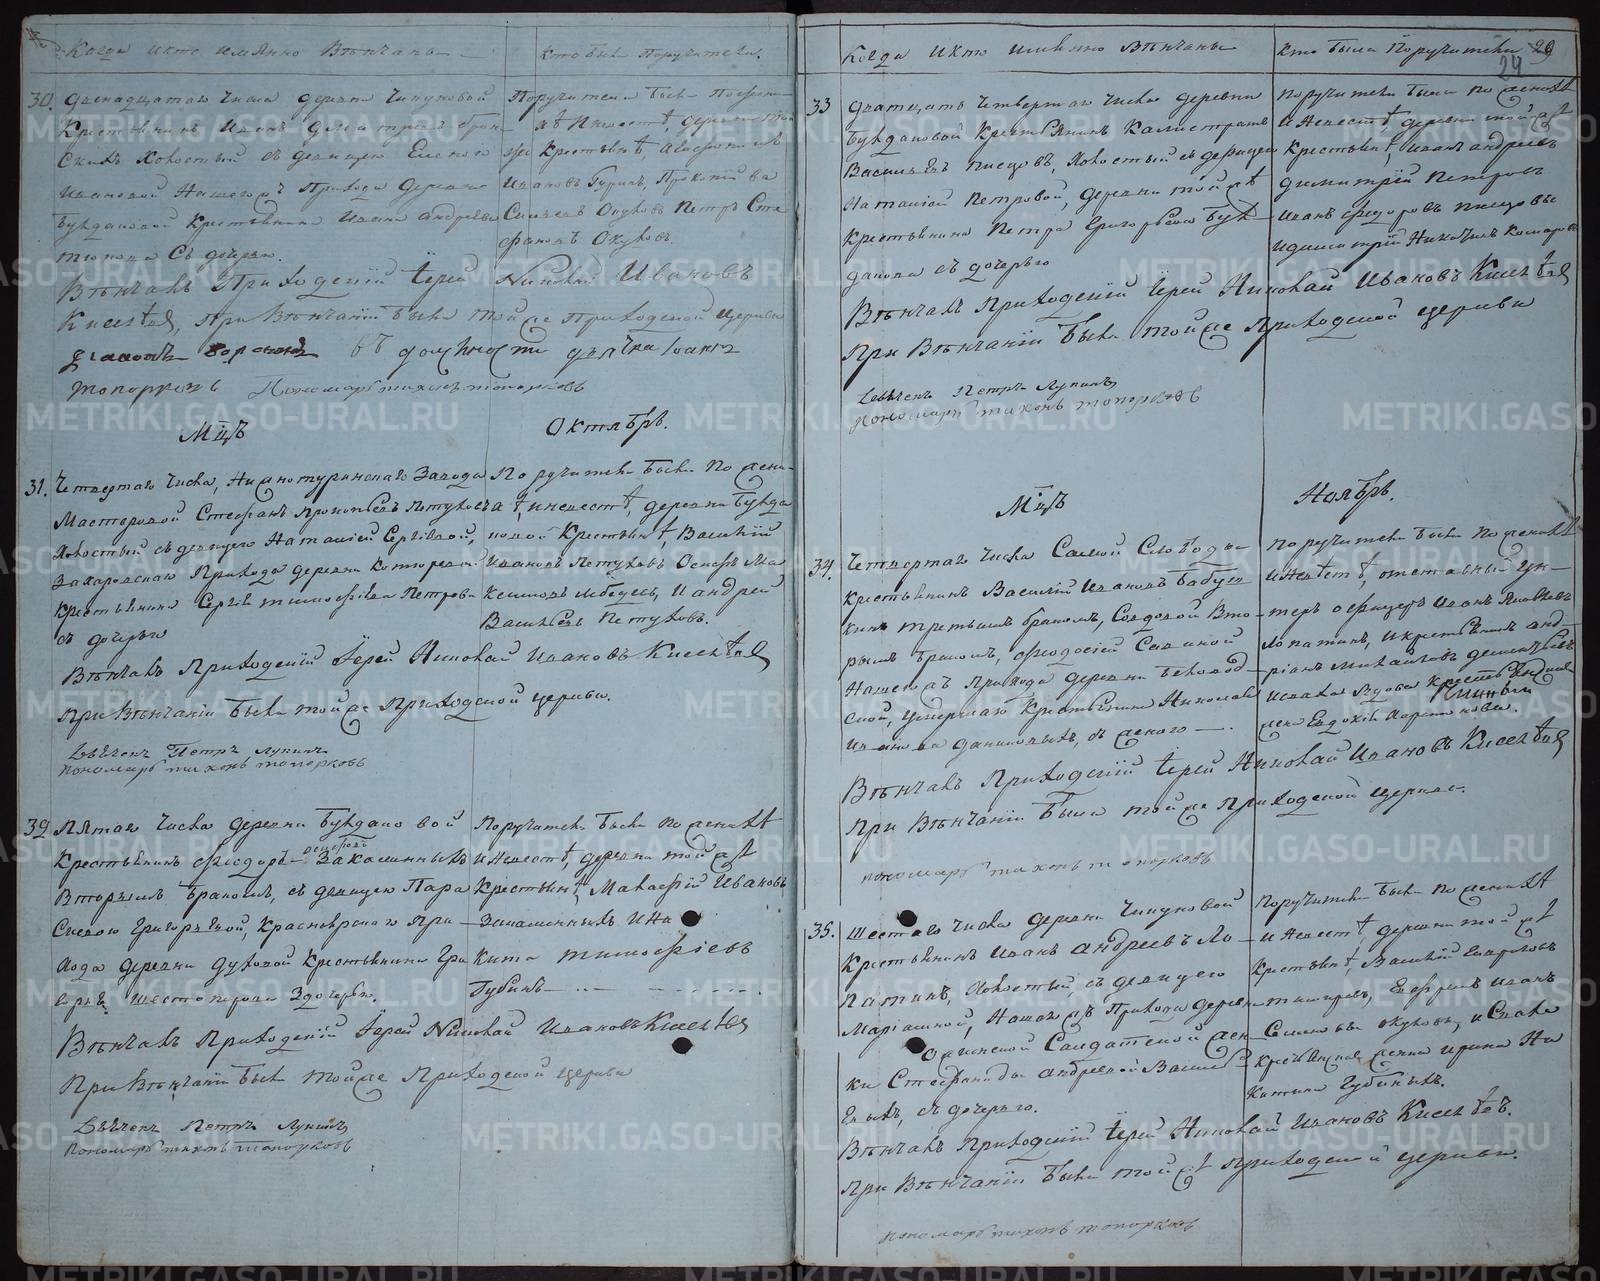 Когда икто имянно Венчаны
Кто были Поручители.
30. Двенадцатаго Числа деревни Чипуковой
Крестьянинъ Иванъ Димитріевъ
Холостый съ девицею Еленою
Ивановой Нашегожъ Прихода Деревни
Буждановой Крестьянина Ивана Андреева
съ дочерью.
Поручители были
Невесте, деревни
Крестьяне,
Ивановъ Гуринъ, Прокопій Ва
Окуловъ Петръ Сте
фановъ Окуловъ.
Венчалъ Приходскій Іерей Николай Ивановъ
Киселевъ, При Венчаніи были тойже Приходской церкви
въ должности дьячка
Топорковъ Пономарь Тихонъ Топорковъ
Мцъ Октябрь.
31. Четвертаго Числа, Нижнотуринскаго Завода
Мастеровой Стефанъ Прокопьевъ Петуховъ
Холостый съ девицею Наталіей Сергіевой,
Захаровскаго Прихода деревни
Крестьянина Сергія Тимофеева Петрова
съ дочерью
Поручители были по жени
хе, и невесте, деревни Бужда
новой Крестьяне, Василій
Ивановъ Петуховъ Осипъ Ма
ксимовъ Лебедевъ, И Андрей
Васильевъ Петуховъ.
Венчалъ Приходскій Іерей Николай Ивановъ Киселевъ
При Венчаніи были тойже Приходской церкви.
Дьячекъ Петръ Лукинъ
пономарь тихонъ топорковъ
32 Пятаго Числа деревни Буждановой
Крестьянинъ Феодоръ Закаменныхъ
Вторымъ бракомъ, съ девицею Пара
скевою Григорьевой, Красноярского При
хода деревни Духовой Крестьянина Гри
горья Шестоперова Здочерью.
Поручители были по женихе
и Невесте, деревни тойже
Крестьяне, Макарій Ивановъ
Закаменныхъ И Ни
кита тимофеевъ
Губинъ
Венчалъ Приходскій Іерей Николай Ивановъ Киселевъ
При Венчаніи были тойже Приходской церкви
Дьячекъ Петръ Лукинъ
Пономарь тихонъ топорковъ
Когда Икто имянно Венчаны
Кто были Поручители 29
24
33 Дватцать Четвертаго Числа деревни
Буждановой Крестьянинъ Калистратъ
Васильевъ Писцовъ, Холостый съ девицею
Наталіей Петровой, деревни тойже
Крестьянина Петра Григорьева Буж
данова съ дочерью
поручители были по женихе
и Невесте деревни тойже
Крестьяне, Иванъ Андреевъ
Димитрій Петровъ
Иванъ Федоровъ Писцовы
идимитрій Никитинъ Комаровъ
Венчалъ Приходскій Іерей Николай Ивановъ Киселевъ
При Венчаніи были тойже Приходской церкви
Дьячекъ Петръ Лукинъ
пономарь тихонъ топорковъ
Мцъ Ноябрь.
34. Четвертаго Числа Самой Слободы
Крестьянинъ Василій Ивановъ Бабуш
кинъ третьимъ бракомъ, Со вдовой Вто
рымъ бракомъ, Феодосіей Савиной
Нашегожъ Прихода деревни
умершаго Крестьянина Николая
Иванова Даниловыхъ, съ женою
поручители были по женихе
и Невесте, отставный Ун
теръ офицеръ Иванъ Яковлевъ
Лопатинъ, и крестьянинъ Анд
ріанъ Михайловъ
Венчалъ Приходскій Іерей Николай Ивановъ Киселевъ
При Венчаніи были тойже Приходской церкви.
пономарь тихонъ топорковъ
35. Шестаго Числа деревни Чипуковой
Крестьянинъ Иванъ Андреевъ Ло
патинъ, Холостый, съ девицею
Маріамной, Нашегожъ Прихода деревни
Солдатской жен
ки Стефаниды Андреевой Василь
евыхъ, съ дочерью.
Поручители были по женихе
и Невесте, деревни тойже
Крестьяне, Василій
Ефремъ Ивановъ
Окуловъ, и Сваха
Крестьянская женка Ирина Ни
китина Губиныхъ.
Венчалъ Приходскій Іерей Николай Ивановъ Киселевъ.
При Венчаніи были тойже Приходской церкви.
пономарь тихонъ топорковъ
METRIKI.GASO-URAL.RU